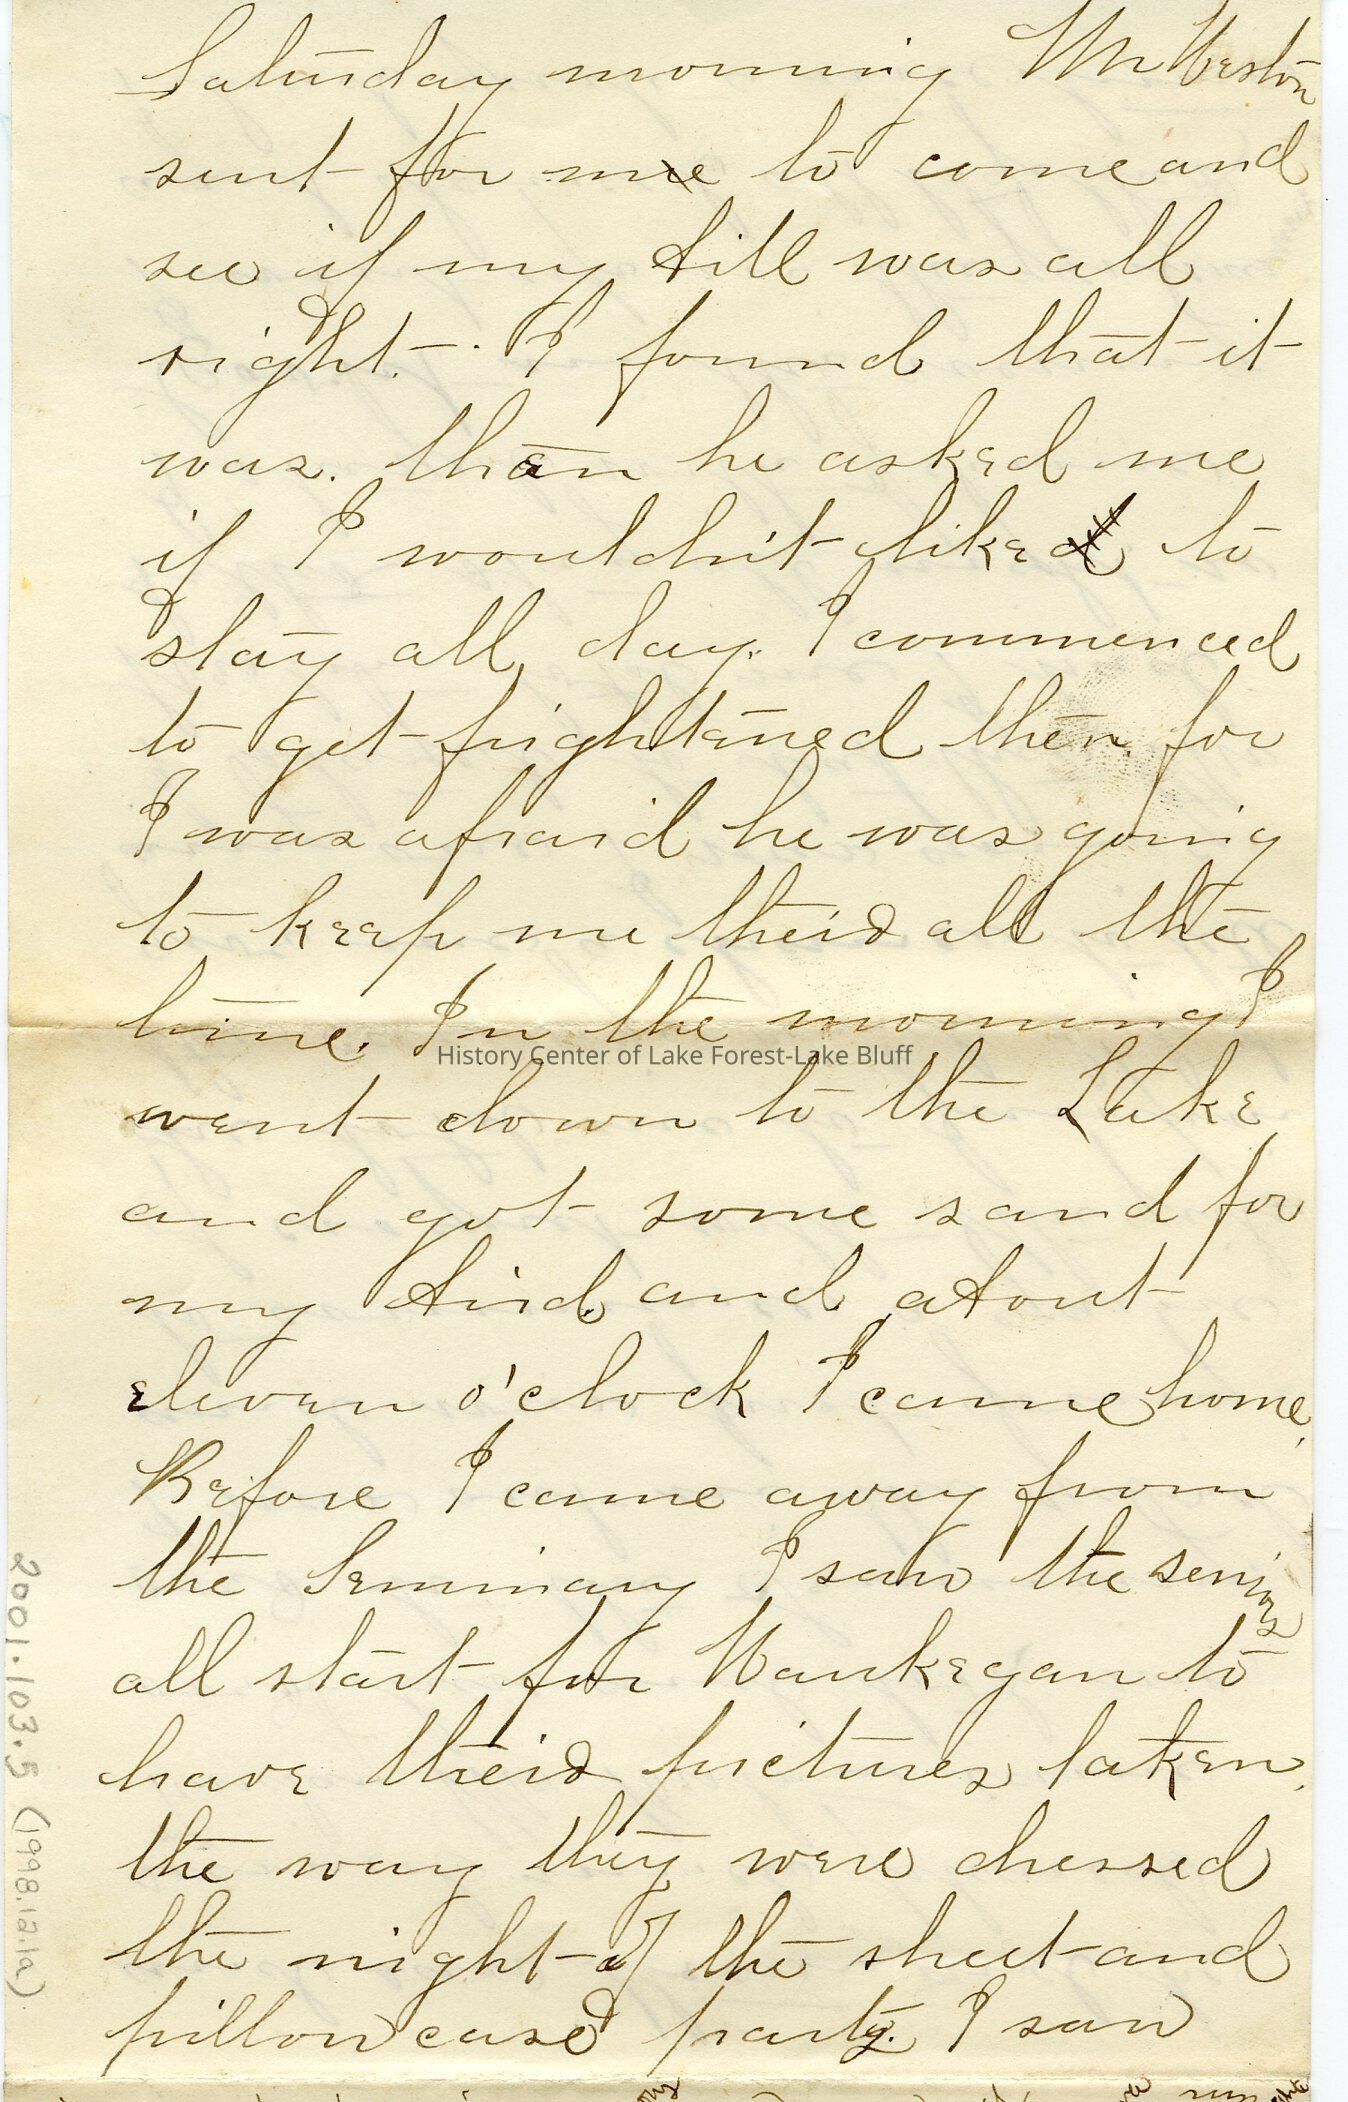 Saturday morning Mr Weston
sent for me to come and
see if my bill was all
right. I found that it
was. than he asked me
if I wouldn't like to
stay all day. I commenced
to get frightened then for
I was afraid he was going
to keep me their all the
time. In the morning I
went down to the Lake
and got some sand for
my bird and about
eleven o'clock I came home.
Before I came away from
the Seminary I saw the seniors
all start for Waukegan to
have their pictures taken,
the way they were dressed
the night of the sheet and
pillow case party. I saw
History Center of Lake Forest-Lake Bluff
2001.103.5 (1998.12.1a)